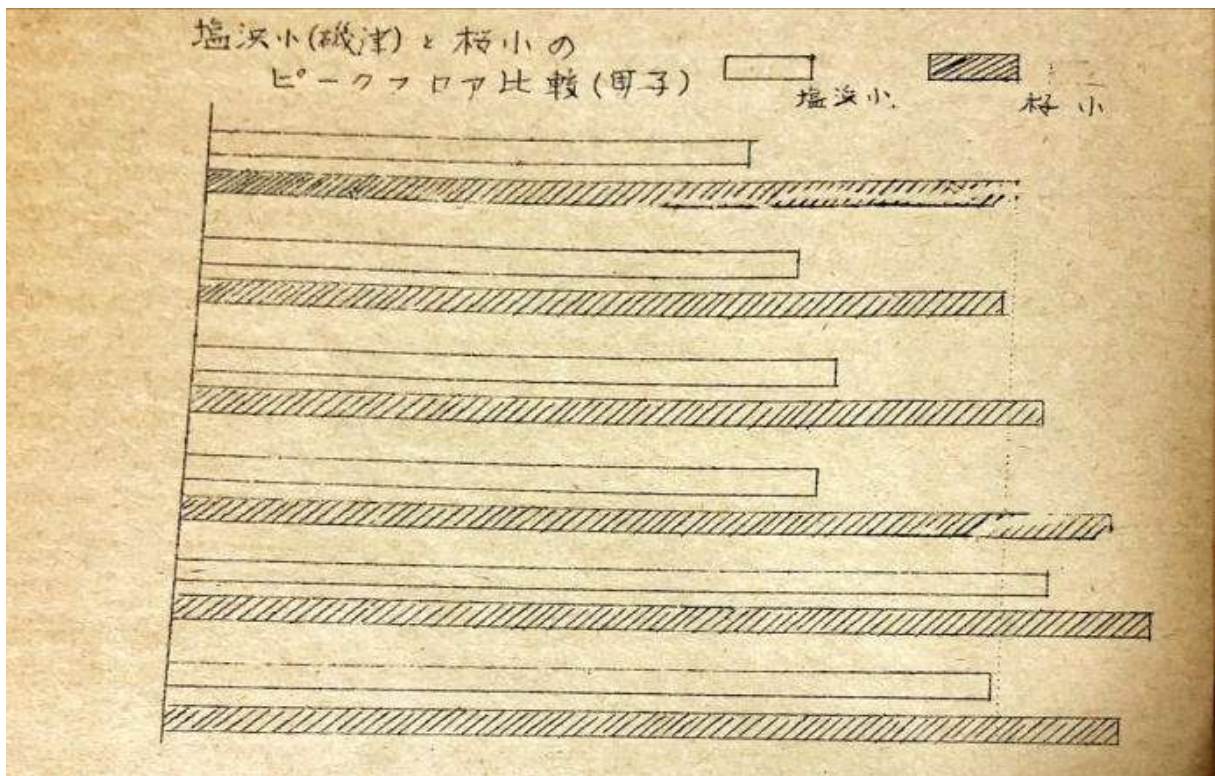 塩浜小(磯津)と桜小の
ピークフロア比較(男子)
塩浜小.
桜小